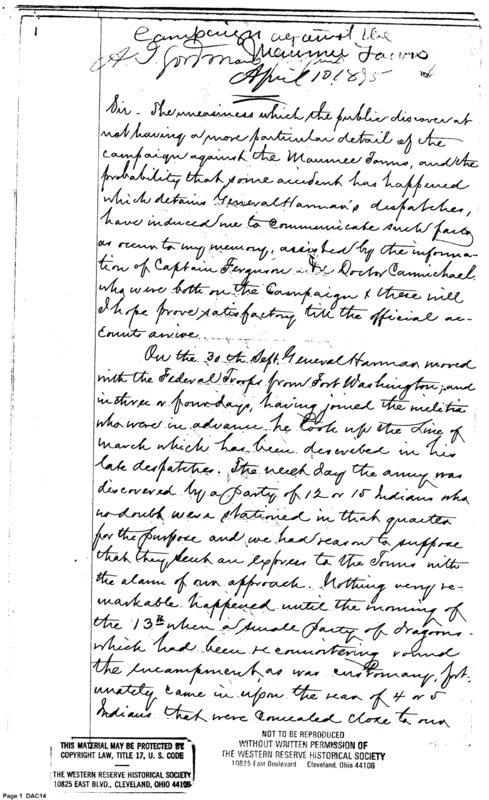 1
Campaign against the
Maumee Towns
April 10 1895
Sir - The uneasiness which the public discover at
not having a more particular detail of the
campaign against the Maumee Towns, and the
probability that some accident has happened
which detains General Harman's dispatches,
have induced me to communicate such facts
as occur to my memory, assisted by the informa-
tion of Captain Ferguson & Doctor Carmichael
who were both on the Campaign & these will
I hope prove satisfactory till the official ac-
counts arrive.
On the 30th Sept. General Harman moved
with the Federal Troops from Fort Washington, and
in three or four days, having joined the militia
who were in advance he took up the Line of
march which has been described in his
late despatches. The next day the army was
discovered by a party of 12 or 15 Indians who
no doubt were stationed in that quarter
for the purpose and we had reason to suppose
that they sent an express to the Towns with
the alarm of our approach. Nothing very re-
markable happened until the morning of
the 13th when a small party of dragoons
which had been reconnoitering round
the encampment, as was customary, fort-
unately came in upon the rear of 4 or 5
Indians that were concealed close to our
THIS MATERIAL MAY BE PROTECTED BY
COPYRIGHT LAW, TITLE 17, U. S. CODE
THE WESTERN RESERVE HISTORICAL SOCIETY
10825 EAST BLVD., CLEVELAND, OHIO 44106
NOT TO BE REPRODUCED
WITHOUT WRITTEN PERMISSION OF
THE WESTERN RESERVE HISTORICAL SOCIETY
10825 East Boulevard Cleveland, Ohio 44106
Page 1 DAC14